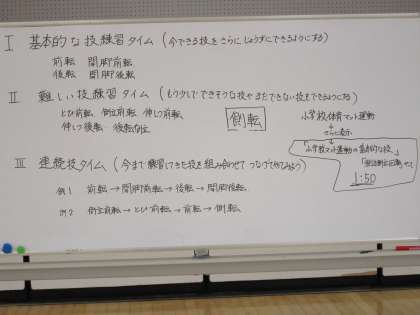 I 基本的な技練習タイム (今できる技をさらにじょうずにできるようにする)
前転 開脚前転
後転 開脚後転
II 難しい技練習タイム (もう少しでできそうな技やまだできない技もできるようにする)
とび前転 倒立前転 伸しつ前転
伸しつ後転 後転倒立
側転
小学校体育マット運動
↓
さらに表示
↓
「小学校マット運動の基本的な技」
1:50
III 連続技タイム (今まで練習してきた技を組み合わせてつなげてやってみよう)
例1 前転→開脚前転→後転→開脚後転
例2 倒立前転→とび前転→前転→側転